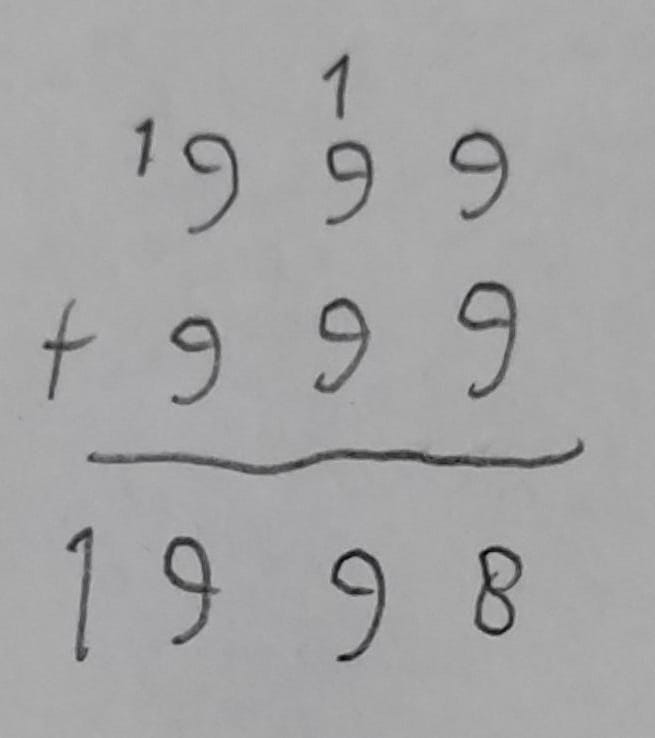 1
1 9 9 9
+ 9 9 9
1 9 9 8